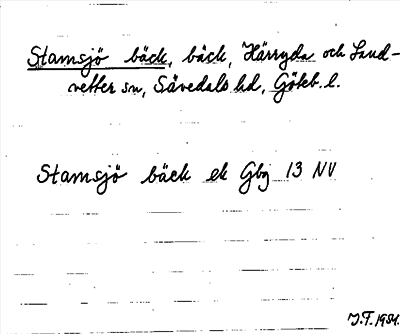 Stamsjö bäck, bäck, Härryda och Land-
vetter sn, Sävedals hd, Göteb. l.
Stamsjö bäck ek Gbg 13 NV
J.F. 1954.